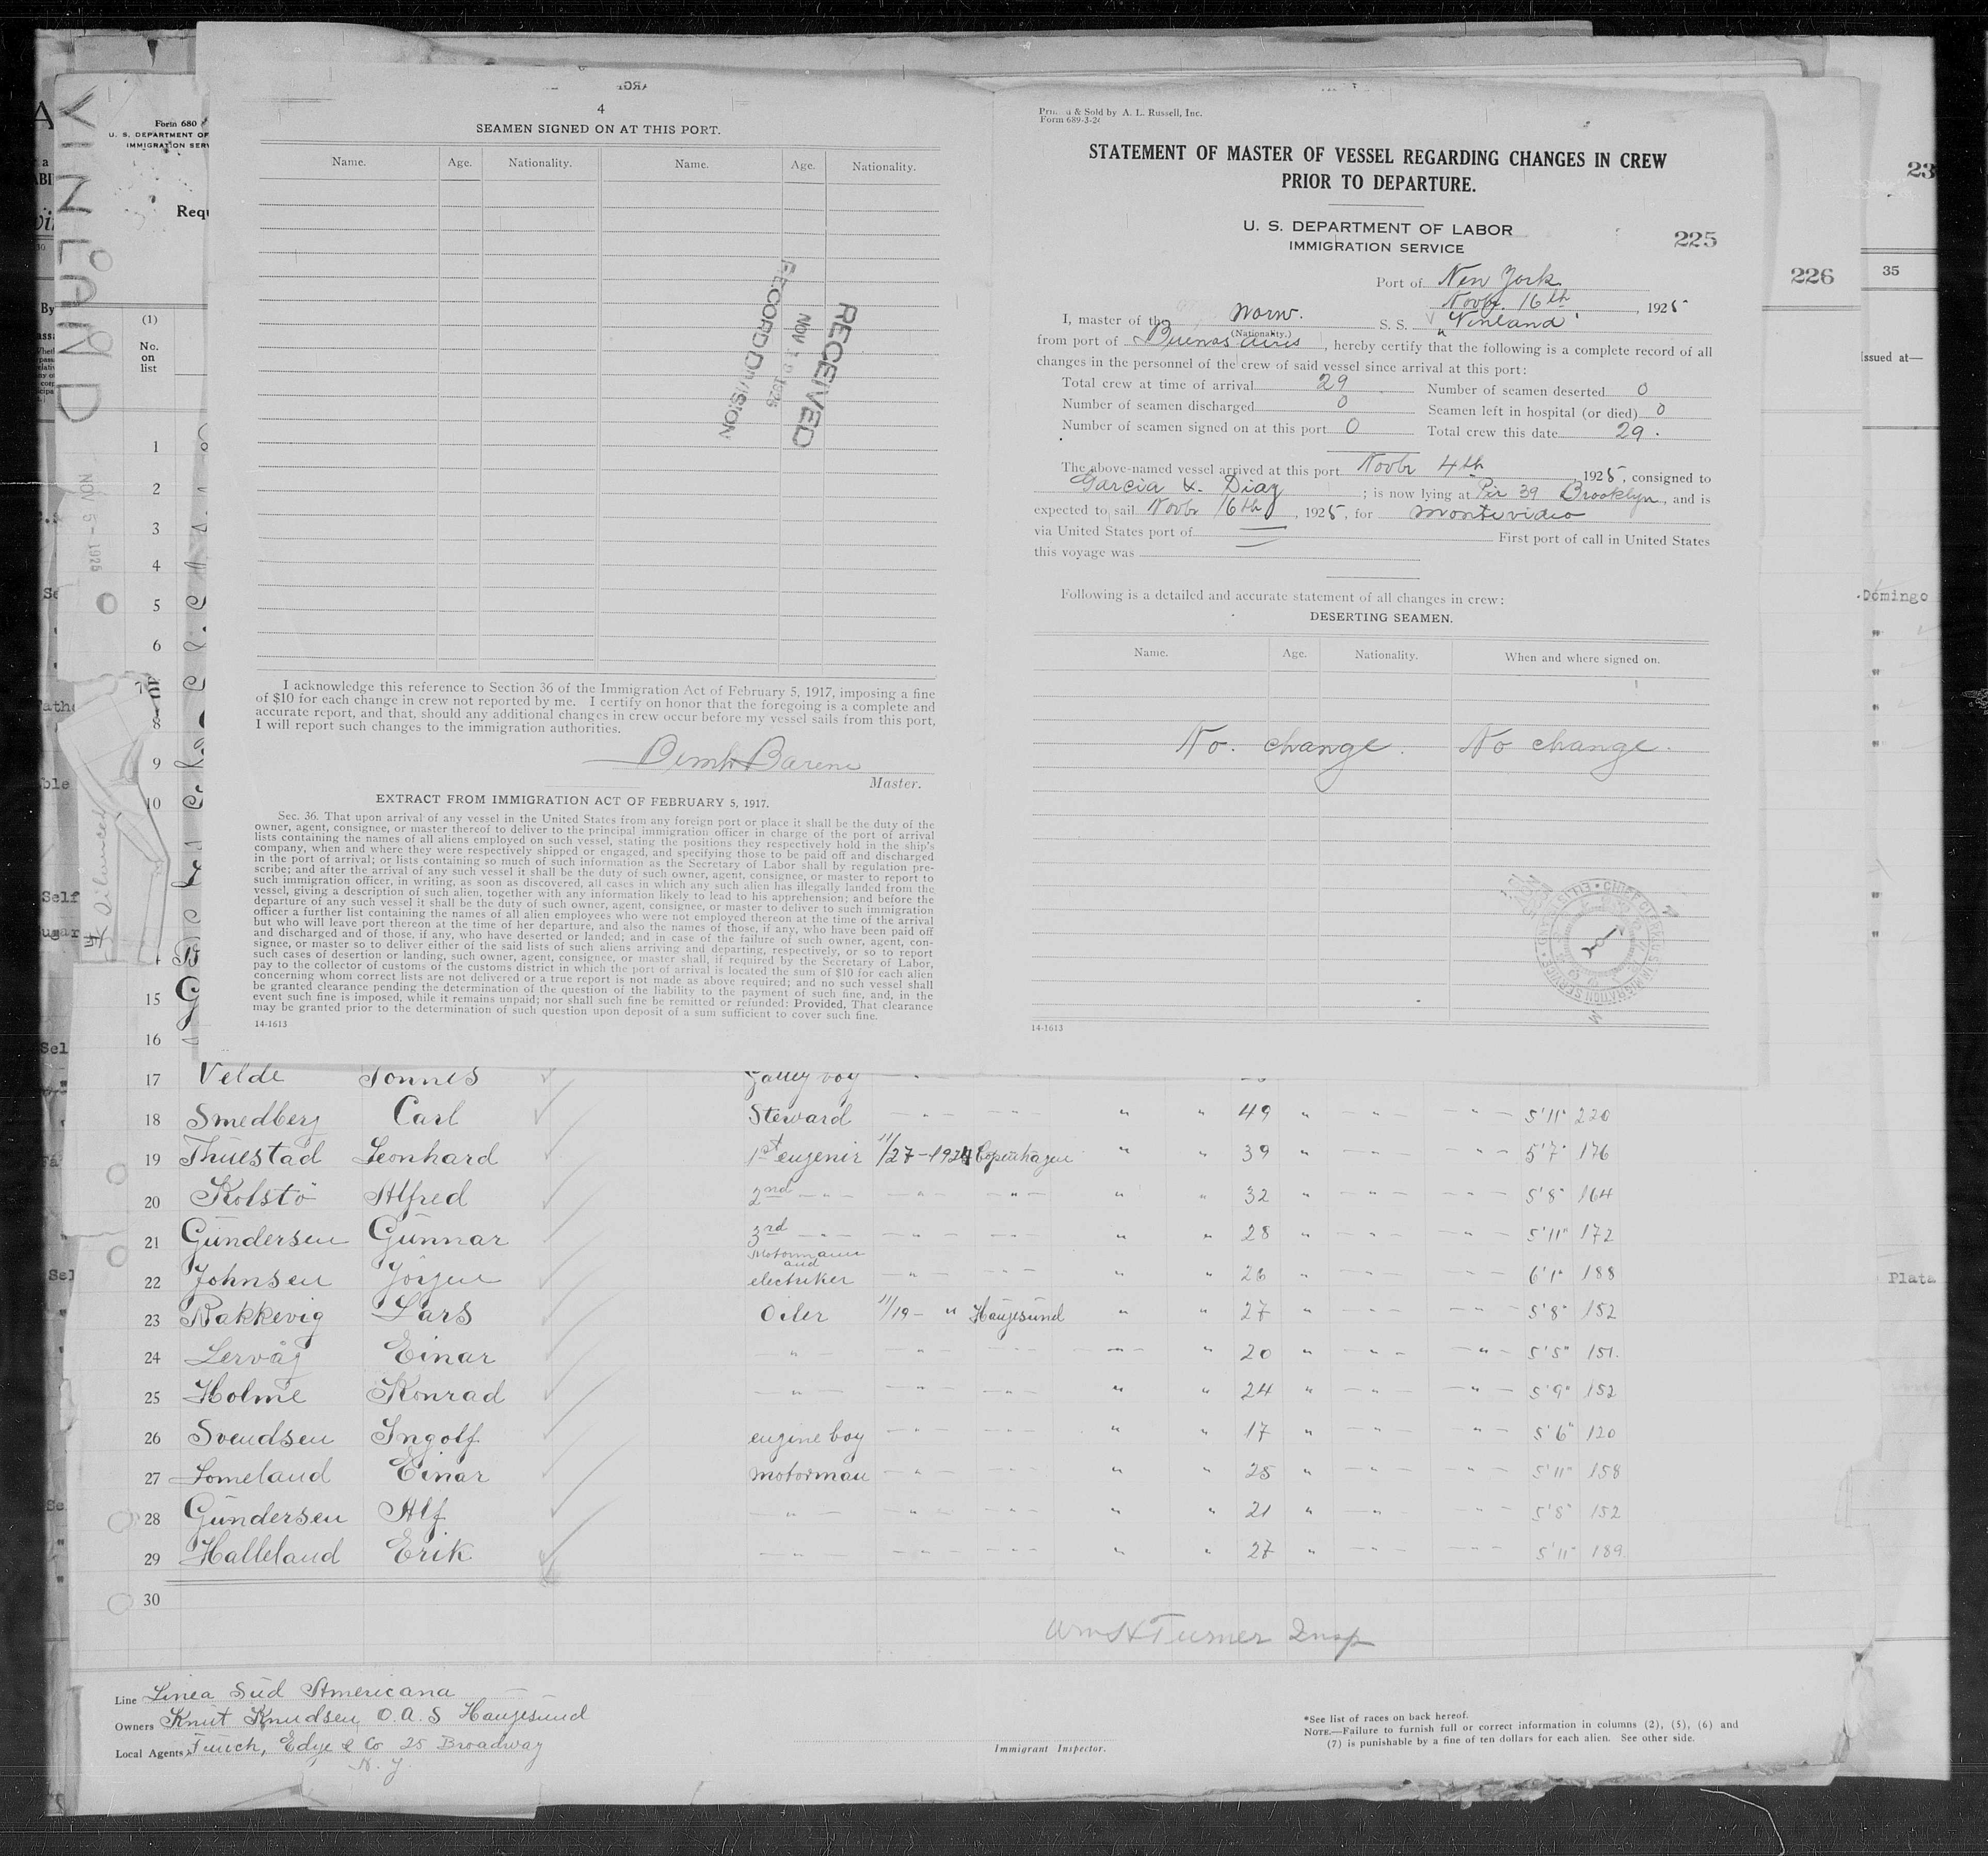 4
SEAMEN SIGNED ON AT THIS PORT.
Name. Age. Nationality. Name. Age. Nationality.
RECEIVED
NOV 1925
RECORD DIVISION
I acknowledge this reference to Section 36 of the Immigration Act of February 5, 1917, imposing a fine
of $10 for each change in crew not reported by me. I certify on honor that the foregoing is a complete and
accurate report, and that, should any additional changes in crew occur before my vessel sails from this port,
I will report such changes to the immigration authorities.
Master.
EXTRACT FROM IMMIGRATION ACT OF FEBRUARY 5, 1917.
Sec. 36. That upon arrival of any vessel in the United States from any foreign port or place it shall be the duty of the
owner, agent, consignee, or master thereof to deliver to the principal immigration officer in charge of the port of arrival
lists containing the names of all aliens employed on such vessel, stating the positions they respectively hold in the ship's
company, when and where they were respectively shipped or engaged, and specifying those to be paid off and discharged
in the port of arrival; or lists containing so much of such information as the Secretary of Labor shall by regulation pre-
scribe; and after the arrival of any such vessel it shall be the duty of such owner, agent, consignee, or master to report to
such immigration officer, in writing, as soon as discovered, all cases in which any such alien has illegally landed from the
vessel, giving a description of such alien, together with any information likely to lead to his apprehension; and before the
departure of any such vessel it shall be the duty of such owner, agent, consignee, or master to deliver to such immigration
officer a further list containing the names of all alien employees who were not employed thereon at the time of the arrival
but who will leave port thereon at the time of her departure, and also the names of those, if any, who have been paid off
and discharged and of those, if any, who have deserted or landed; and in case of the failure of such owner, agent, con-
signee, or master so to deliver either of the said lists of such aliens arriving and departing, respectively, or so to report
such cases of desertion or landing, such owner, agent, consignee, or master shall, if required by the Secretary of Labor,
pay to the collector of customs of the customs district in which the port of arrival is located the sum of $10 for each alien
concerning whom correct lists are not delivered or a true report is not made as above required; and no such vessel shall
be granted clearance pending the determination of the question of the liability to the payment of such fine, and, in the
event such fine is imposed, while it remains unpaid; nor shall such fine be remitted or refunded: Provided, That clearance
may be granted prior to the determination of such question upon deposit of a sum sufficient to cover such fine.
14-1613
Printed & Sold by A. L. Russell, Inc.
Form 689-3-24
STATEMENT OF MASTER OF VESSEL REGARDING CHANGES IN CREW
PRIOR TO DEPARTURE.
U. S. DEPARTMENT OF LABOR
IMMIGRATION SERVICE
225
Port of New York
Novbr. 16th, 1925
I, master of the Norw. S. S. "Vinland"
(Nationality.)
from port of Buenos Aires, hereby certify that the following is a complete record of all
changes in the personnel of the crew of said vessel since arrival at this port:
Total crew at time of arrival 29 Number of seamen deserted 0
Number of seamen discharged 0 Seamen left in hospital (or died) 0
Number of seamen signed on at this port 0 Total crew this date 29.
The above-named vessel arrived at this port Novbr 4th 1925, consigned to
Garcia & Diaz; is now lying at Pir 39 Brooklyn, and is
expected to sail Novbr 16th, 1925, for Montevideo
via United States port of First port of call in United States
this voyage was
Following is a detailed and accurate statement of all changes in crew:
DESERTING SEAMEN.
Name. Age. Nationality. When and where signed on.
No. change. No change.
14-1613
VINLAND
NOV 5 - 1925
Form 680
U. S. DEPARTMENT OF
IMMIGRATION SERV
Requ
(1)
No.
on
list
226
23
35
Issued at—
Domingo
Plata
1
2
3
4
5
6
7
8
9
10
15
16
17 Velde Tonnes Galley boy
18 Smedberg Carl Steward " " 49 " 5'11" 220
19 Thuestad Leonhard 1st eugenir 11/27-1924 Copenhagen " " 39 " 5'7" 176
20 Kolstö Alfred 2nd " " " " " 32 " 5'8" 164
21 Gundersen Gunnar 3rd " " " " " 28 " 5'11" 172
22 Johnsen Jörgen Motormann and electriker " " " " 26 " 6'1" 188
23 Rakkevig Lars Oiler 11/19 - " Haugesund " " 27 " 5'8" 152
24 Lervåg Einar " " " " " 20 " 5'5" 151.
25 Holme Konrad " " " " " 24 " 5'9" 152
26 Svendsen Ingolf engine boy " " " " 17 " 5'6" 120
27 Lomeland Einar motorman " " " " 25 " 5'11" 158
28 Gundersen Alf " " " " " 21 " 5'8" 152
29 Halleland Erik " " " " " 27 " 5'11" 189
30
Wm H Turner Insp
Line Linea Sud Americana
Owners Knut Knudsen O.A.S Haugesund
Local Agents Funch, Edye & Co 25 Broadway
N. Y.
Immigrant Inspector.
*See list of races on back hereof.
NOTE.—Failure to furnish full or correct information in columns (2), (5), (6) and
(7) is punishable by a fine of ten dollars for each alien. See other side.